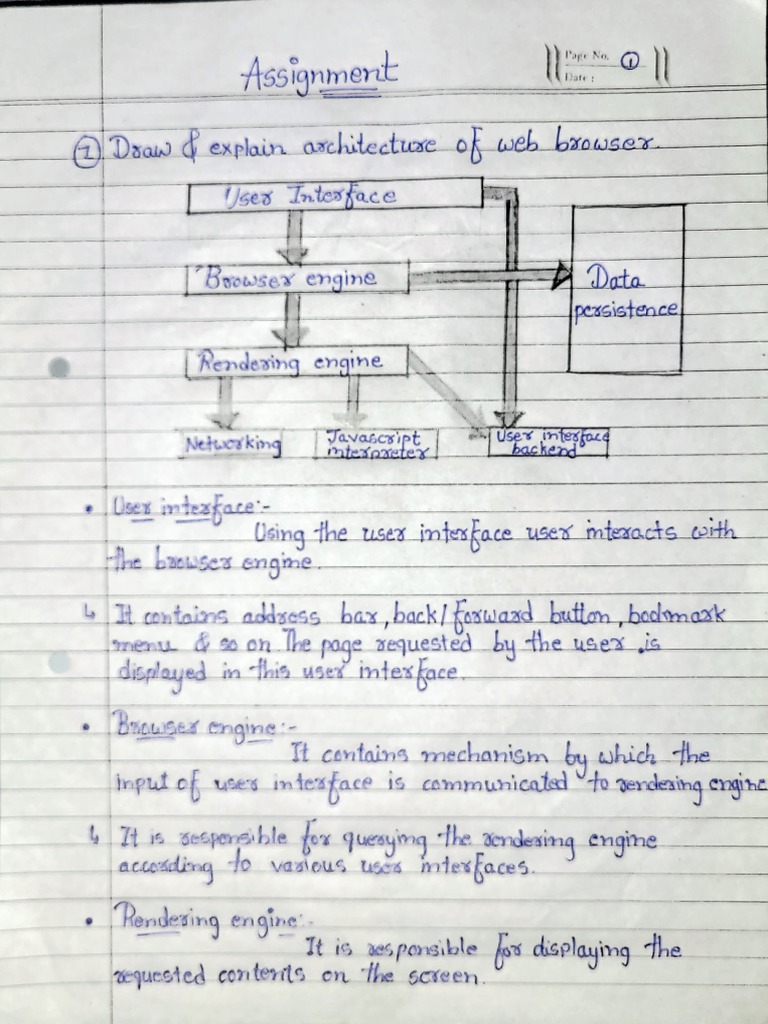 Assignment
Page No. 1
Date :
1 Draw & explain architecture of web browser.
User Interface
Browser engine
Data
persistence
Rendering engine
Networking
Javascript
interpreter
User interface
backend
• User interface:-
Using the user interface user interacts with
the browser engine.
↳ It contains address bar, back/forward button, bookmark
menu & so on. The page requested by the user is
displayed in this user interface.
• Browser engine:-
It contains mechanism by which the
input of user interface is communicated to rendering engine
↳ It is responsible for querying the rendering engine
according to various user interfaces.
• Rendering engine:-
It is responsible for displaying the
requested contents on the screen.